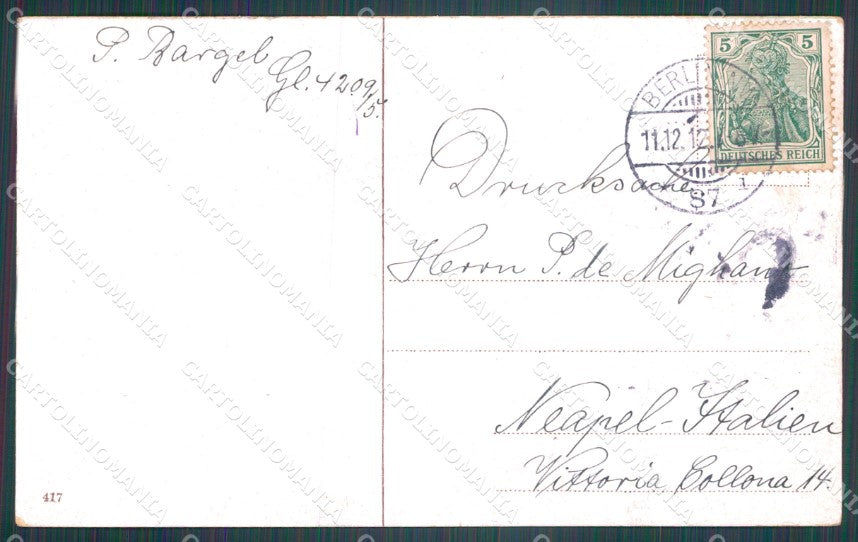 P. Bargel
Gl. 4209/5.
5 5
DEUTSCHES REICH
BERLIN
11.12.12.
87
Drucksache
Herrn P. de Mighano
Neapel-Italien
Vittoria Collona 14.
417
CARTOLINOMANIA